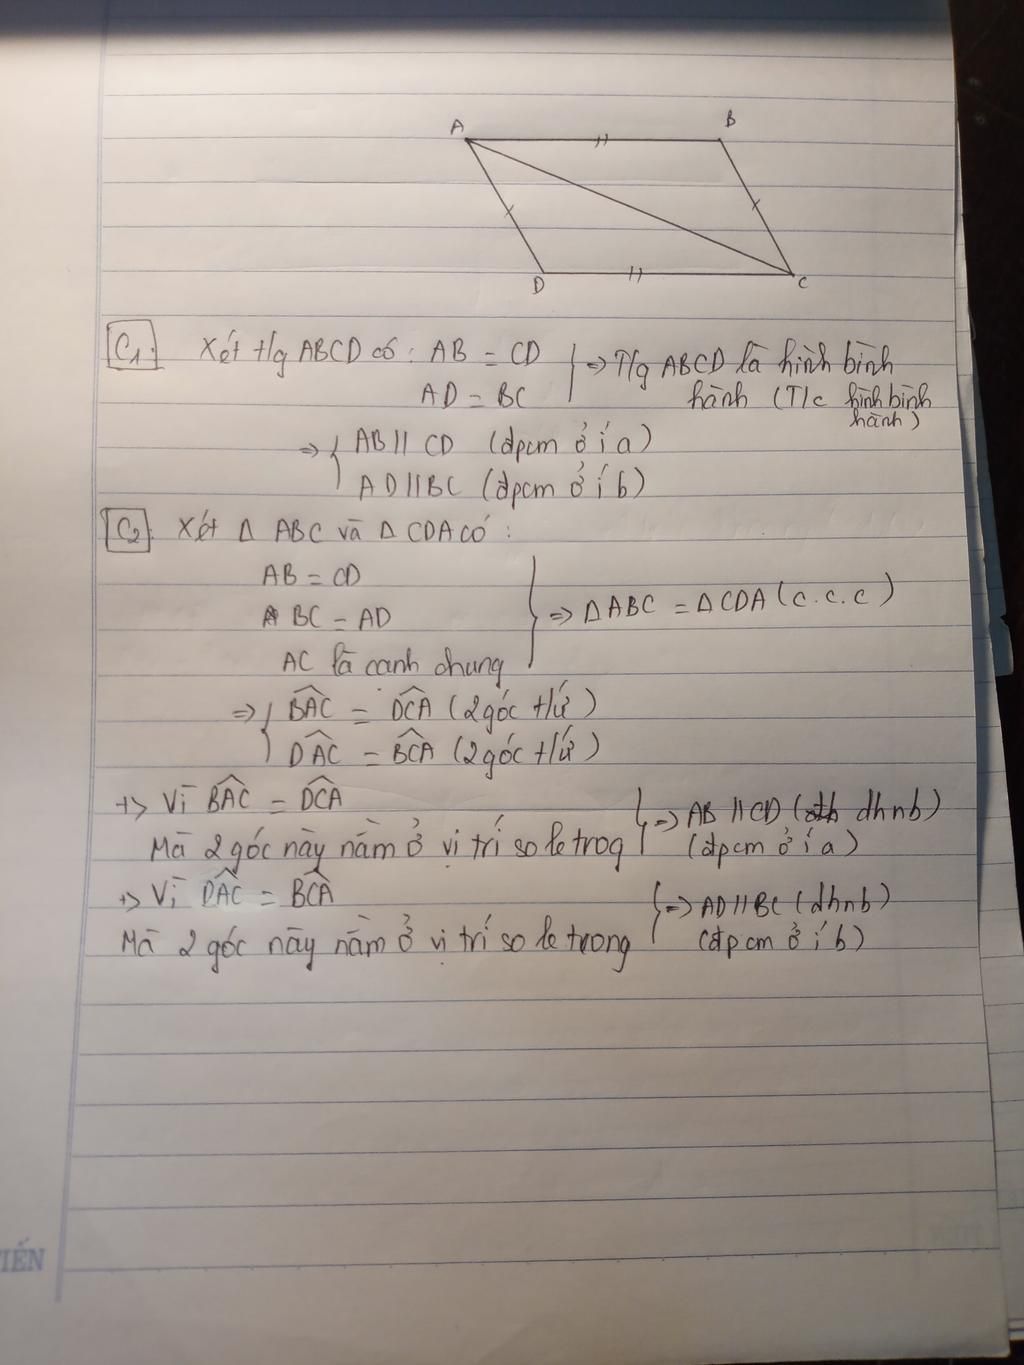 A
B
D
C
C1. Xét t/g ABCD có: AB = CD
AD = BC
=> T/g ABCD là hình bình
hành (T/c hình bình
hành)
=> AB // CD (đpcm ở í a)
AD // BC (đpcm ở í b)
C2. Xét Δ ABC và Δ CDA có:
AB = CD
BC = AD
AC là cạnh chung
=> ΔABC = ΔCDA (c.c.c)
=> BAC = DCA (2 góc t/ứ)
DAC = BCA (2 góc t/ứ)
+> Vì BAC = DCA
Mà 2 góc này nằm ở vị trí so le trog
=> AB // CD (dhnb)
(đpcm ở í a)
+> Vì DAC = BCA
Mà 2 góc này nằm ở vị trí so le trong
=> AD // BC (dhnb)
(đpcm ở í b)
TIẾN